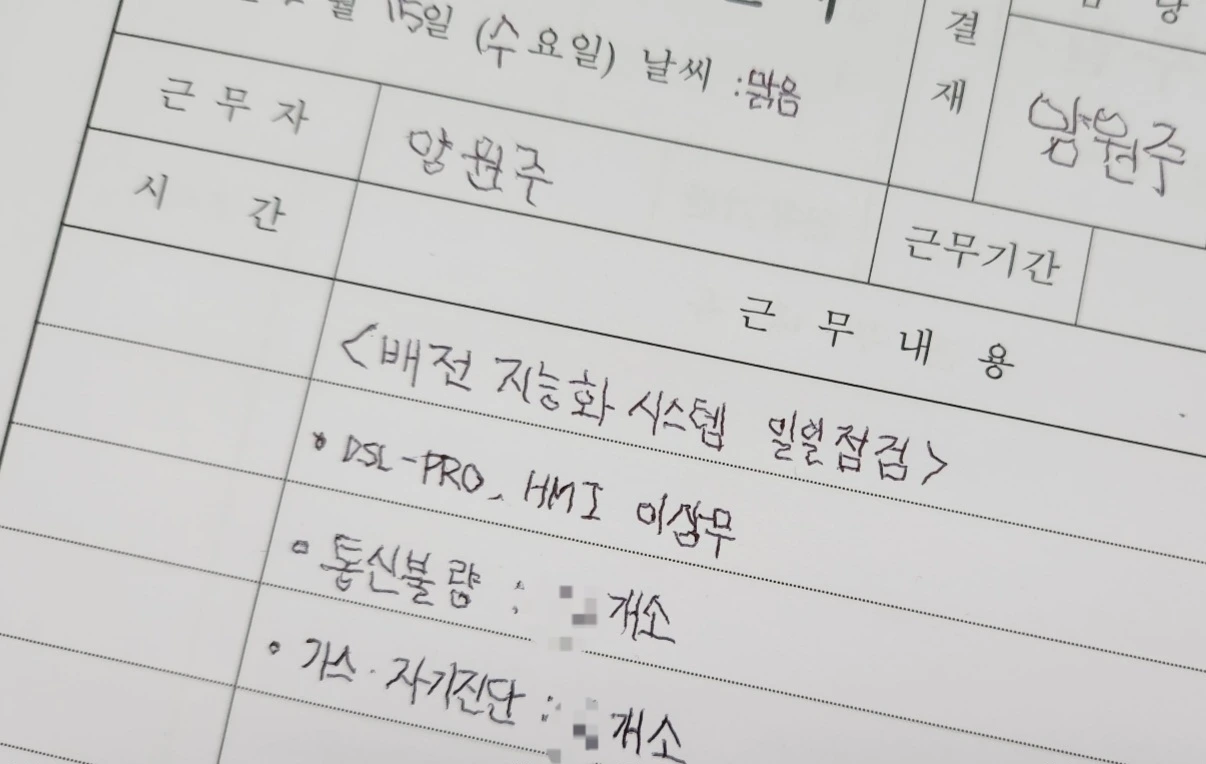 월 15일 (수요일) 날씨 : 맑음
결
재
근 무 자
양원주
양원주
시 간
근무기간
근 무 내 용
<배전 지능화 시스템 일일점검>
• DSL-PRO, HMI 이삼무
• 통신불량 : 개소
• 가스·자기진단 : 개소